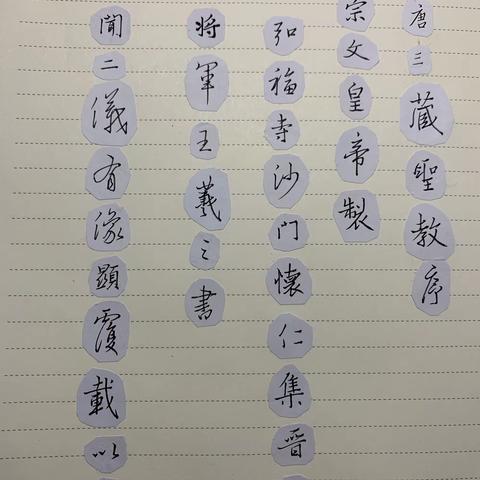 唐三藏聖教序
宗文皇帝製
弘福寺沙門懷仁集晉
將軍王羲之書
聞二儀有像顯覆載以